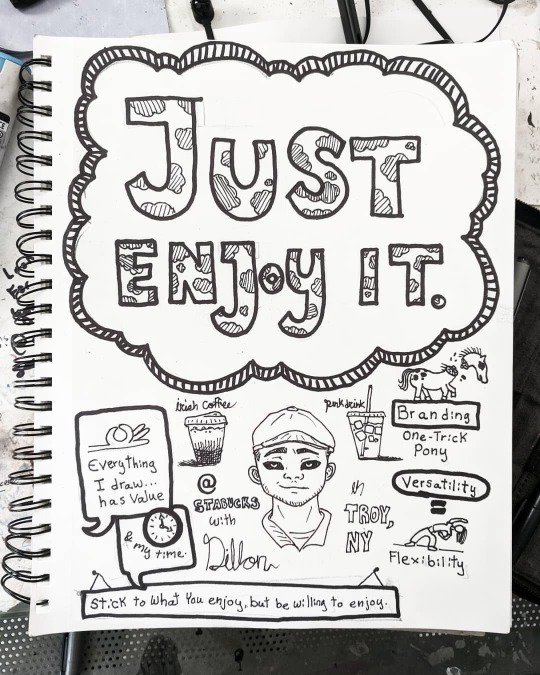 JUST
ENJOY IT.
irish Coffee
pink drink
Branding
One-Trick
Pony
Everything
I draw...
has value
& my time.
@
STABUCKS
with
Dillon
in
TROY,
NY
Versatility
=
Flexibility
Stick to what you enjoy, but be willing to enjoy.